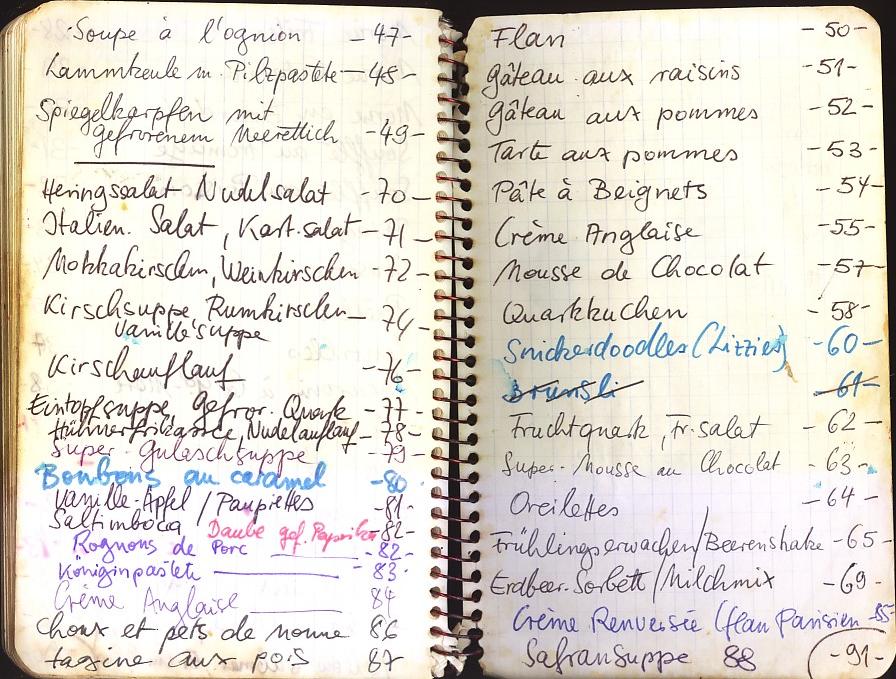 Soupe à l'ognion -47-
Lammkeule m. Pilzpastete -48-
Spiegelkarpfen mit
gefrorenem Meerettich -49-
Heringssalat Nudelsalat -70-
Italien. Salat, Kart.salat -71-
Mokkakirschen, Weinkirschen -72-
Kirschsuppe, Rumkirschen -74-
Vanillesuppe
Kirschauflauf -76-
Eintopfsuppe, gefror. Quark -77-
Hühnerfrikassee, Nudelauflauf -78-
Super-Gulaschsuppe -79-
Bonbons au caramel -80-
Vanille-Äpfel / Paupiettes -81-
Saltimboca Daube gef. Paprika -82-
Rognons de Porc -82-
Königinpastete -83-
Crème Anglaise 84
Choux et pets de nonne 86
tagine aux pois 87
Flan -50-
Gâteau aux raisins -51-
Gâteau aux pommes -52-
Tarte aux pommes -53-
Pâte à Beignets -54-
Crème Anglaise -55-
Mousse de Chocolat -57-
Quarkkuchen -58-
Snickerdoodles (Lizzies) -60-
Brunsli -61-
Fruchtquark, Fr.salat -62-
Super-Mousse au Chocolat -63-
Oreilettes -64-
Frühlingserwachen/Beerenshake -65-
Erdbeer-Sorbett/Milchmix -69-
Crème Renversée (flan Parisien -85
Safransuppe 88 -91-